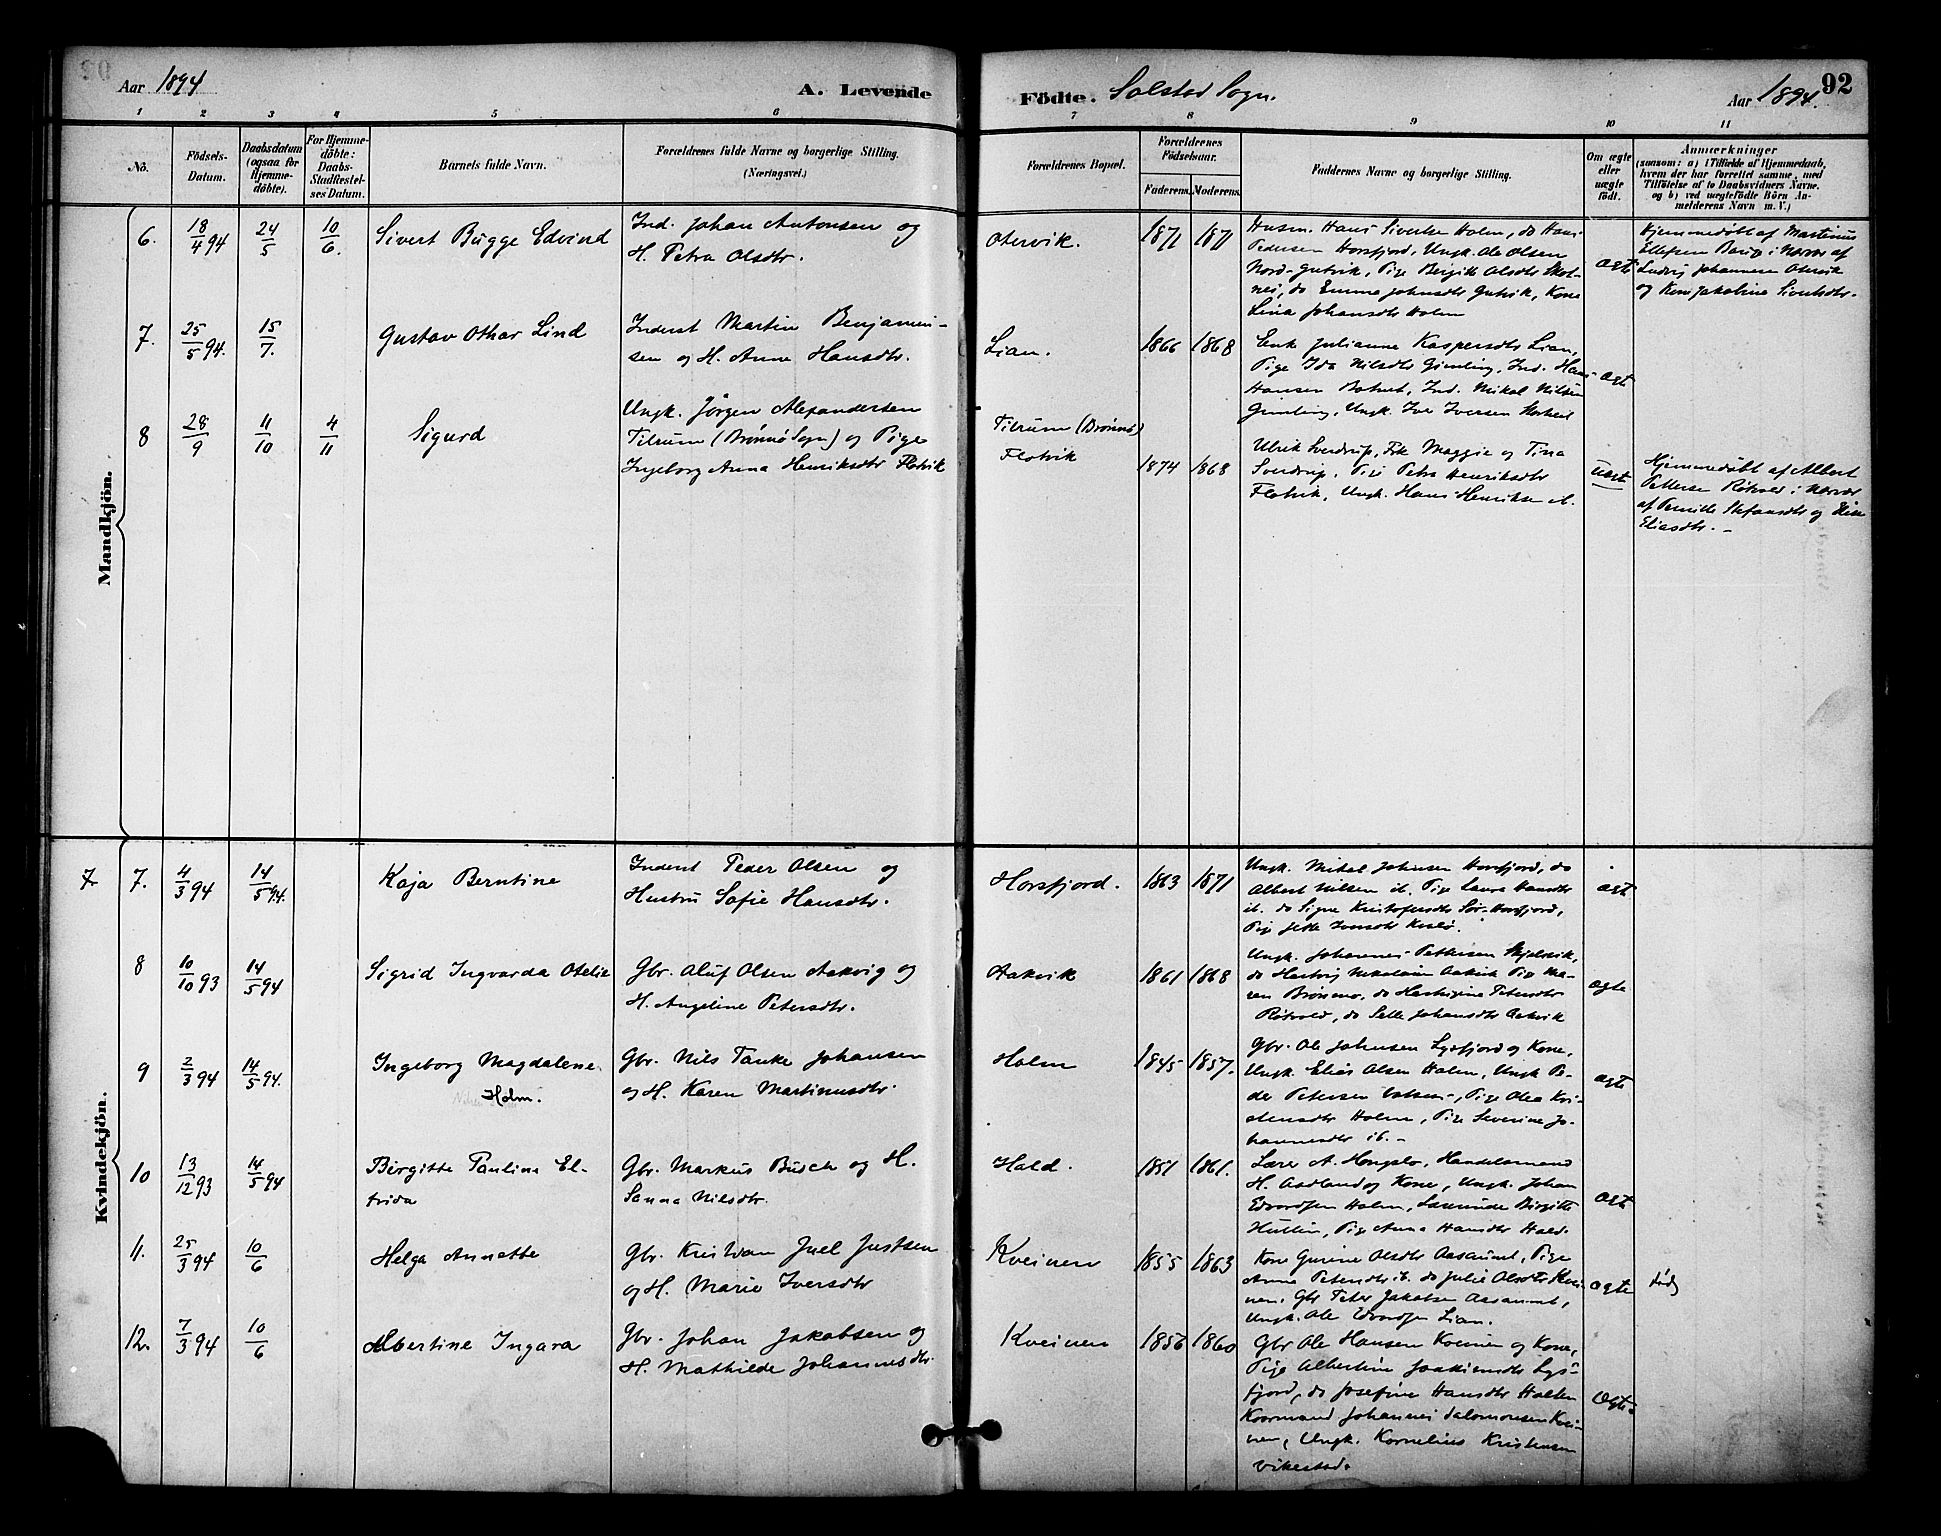 Aar 1894
A. Levende
Födte. Solstad Sogn.
Aar 1894.
92
1 2 3 4 5 6 7 8 9 10 11
No.
Födsels-Datum.
Daabsdatum (ogsaa for Hjemme-döbte).
For Hjemme-döbte: Daabs-Stadfæstel-ses Datum.
Barnets fulde Navn.
Forældrenes fulde Navne og borgerlige Stilling. (Næringsvei.)
Forældrenes Bopæl.
Forældrenes Födselsaar.
Faderens. Moderens.
Faddernes Navne og borgerlige Stilling.
Om ægte eller uægte födt.
Anmærkninger
(saasom: a) i Tilfælde af Hjemmedaab,
hvem der har forrettet samme, med
Tilföielse af to Daabsvidners Navne,
og b) ved uægtefödte Börn An-
melderens Navn m. V.)
Mandkjön.
6. 18/4 94 24/5 10/6. Sivert Bugge Edvind
Ind. Johan Antonsen og
H. Petra Olsdtr.
Otervik. 1871 1871
Husm. Hans Sivertsen Holm, do Hans
Pedersen Horsfjord, Ungk. Ole Olsen
Nord-Gutvik, Pige Birgitte Olsdtr
do Emma Johnsdtr Gutvik, Kone
Lina Johansdtr Holm
ægte
Hjemmedöbt af Martinus
Ellefsen i Nærvær af
Ludvig Johannesen Otervik
og Kone Jakobine Sivertsdtr.
7. 25/5 94. 15/7. Gustav Othar Lind
Inderst Martin Benjamin-
sen og H. Anne Hansdtr.
Lian. 1866 1868
Enk Julianne Kaspersdtr Lian,
Pige Ida Nilsdtr Gimling, Ind. Hans
Hansen Ind. Mikal Nilsen
Gimling, Ungk. Iver Iversen
ægte
8 28/9 11/10 4/11 Sigurd
Ungk. Jörgen Alexandersen
Tilrum (Brønnø Sogn) og Pige
Ingeborg Anna Henriksdtr Flotvik
Tilrum (Brønnø)
Flotvik 1874 1868
Ulrik Sverdrup, Frk Maggie og Tina
Sverdrup, Pige Petra Henriksdtr
Flotvik, Ungk. Hans Henriksen
uægte
Hjemmedöbt af Albert
Pettersen Rötvold i Nærvær
af Pernille Stefansdtr og
Eliasdtr. -
Kvindekjön.
7 7. 4/3 94 14/5 94. Kaja Berntine
Inderst Peder Olsen og
Hustru Sofie Hansdtr.
Horsfjord. 1863 1871
Ungk. Mikal Johnsen Horsfjord, do
Albert Nilsen ib. Pige Laura Hansdtr
ib. do Signe Kristofersdtr Sör-Horsfjord,
Pige Jette Iversdtr
ægte
8 10/10 93 14/5 94 Sigrid Ingvarda Otelie
Gbr. Oluf Olsen Aakvig og
H. Angeline Petersdtr.
Aakvik 1861 1868
Ungk. Johannes Pettersen Skjelsvik,
do Hartvig Nikolaisen Aakvik Pige Ma-
ren Brönmo, do Hartvigine Petersdtr
Rötvold, do Johansdtr Aakvik
ægte
9 2/3 94 14/5 94. Ingeborg Magdalene
Holm.
Gbr. Nils Tanke Johansen
og H. Karen Martinusdtr.
Holm 1845 1857.
Gbr. Ole Johnsen Lysfjord og Kone,
Ungk. Elias Olsen Holm, Ungk Pe-
der Petersen Pige Olea Kri-
stensdtr Holm, Pige Severine Jo-
hannesdtr ib. -
ægte
10 13/12 93 14/5 94 Birgitte Pauline El-
frida
Gbr. Markus Busch og H.
Sanna Nilsdtr.
Hald. 1851 1861.
Lærer A. Hongslo, Handelsmand
H. Aadland og Kone, Ungk. Johan
Edvardsen Holm, Birgitte
Pige Anna Hansdtr Hald.
ægte
11. 25/3 94 10/6 Helga Annette
Gbr. Kristian Juel Justsen
og H. Marie Iversdtr
Kveinen 1855 1863
Kone Gurine Olsdtr Aasaunet, Pige
Anna Petersdtr ib. do Julie Olsdtr Kvei-
nen. Gbr Peter Jakobsen Aasaunet,
Ungk. Ole Edvardsen Lian.
ægte död
12. 7/3 94 10/6 Albertine Ingara
Gbr. Johan Jakobsen og
H. Mathilde Johannesdtr.
Kveinen 1856 1860
Gbr Ole Hansen Kveinen og Kone,
Pige Albertine Joakimsdtr Lys-
fjord, do Josefine Hansdtr Holten
Kaarmand Johannes Salomonsen Kvei-
nen, Ungk. Kornelius Kristensen
Vikestad.
ægte